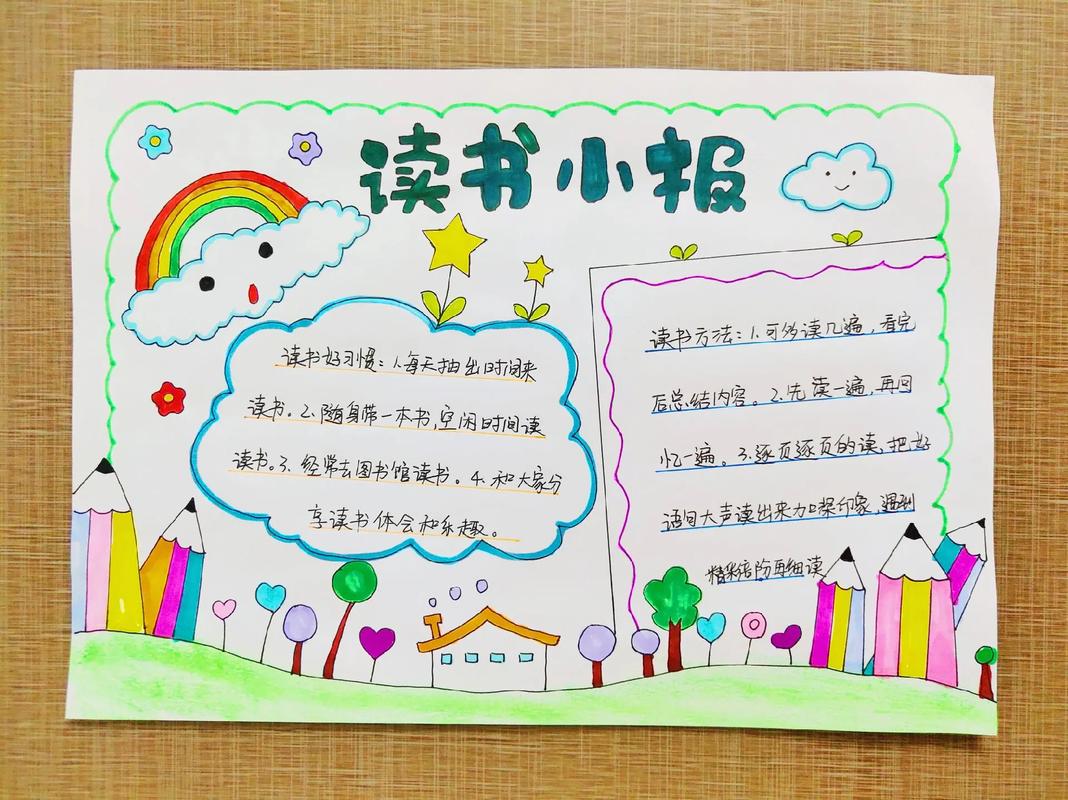 读书小报
读书好习惯：1.每天抽出时间来
读书。2.随身带一本书,空闲时间读
读书。3.经常去图书馆读书。4.和大家分
享读书体会和乐趣。
读书方法：1.可多读几遍,看完
后总结内容。2.先读一遍,再回
忆一遍。3.逐页逐页的读,把好
语句大声读出来加深印象,遇到
精彩部分再细读